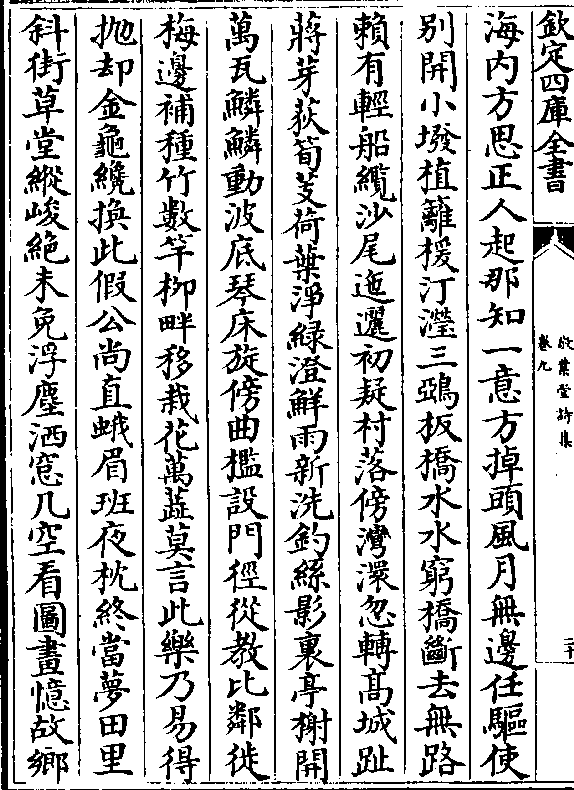 欽定四庫全書
敬業堂詩集
卷九
二十
海内方思正人起那知一意方掉頭風月無邊任驅使
别開小墢植籬楥汀瀅三弫板橋水水窮橋斷去無路
賴有輕船纜沙尾迤邐初疑村落傍灣澴忽轉髙城趾
蔣芽荻筍芟荷葉淨緑澄鮮雨新洗釣絲影裏亭榭開
萬瓦鱗鱗動波底琴床旋傍曲檻設門徑從教比鄰徙
梅邊補種竹數竿柳畔移栽花萬蘤莫言此樂乃易得
抛却金龜纔換此假公尚直蛾眉班夜枕終當夢田里
斜街草堂縱峻絶未免浮塵洒窓几空看圖畫憶故鄉